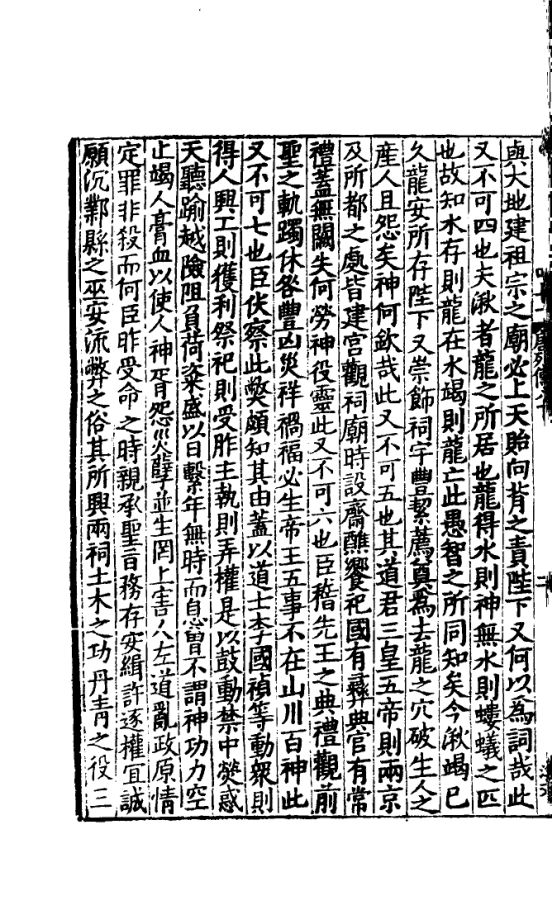 與大地建祖宗之廟必上天貽向背之責陛下又何以為詞哉此
又不可四也夫湫者龍之所居也龍得水則神無水則螻蟻之匹
也故知水存則龍在水竭則龍亡此愚智之所同知矣今湫竭已
久龍安所存陛下又崇飾祠宇豐潔薦奠為去龍之穴破生人之
產人且怨矣神何欽哉此又不可五也其道君三皇五帝則兩京
及所都之處皆建宮觀祠廟時設齋醮饗祀國有彝典官有常
禮蓋無闕失何勞神役靈此又不可六也臣稽先王之典禮觀前
聖之軌躅休咎豐凶災祥禍福必生帝王五事不在山川百神此
又不可七也臣伏察此弊頗知其由蓋以道士李國禎等動衆則
得人興工則獲利祭祀則受胙主執則弄權是以鼓動禁中熒惑
天聽踰越險阻負荷粢盛以日繫年無時而息曾不謂神功力空
止竭人膏血以使人神胥怨災孽並生罔上害人左道亂政原情
定罪非殺而何臣昨受命之時親承聖旨務存安緝許逐權宜誠
願沉鄴縣之巫安流弊之俗其所興兩祠土木之功丹青之役三